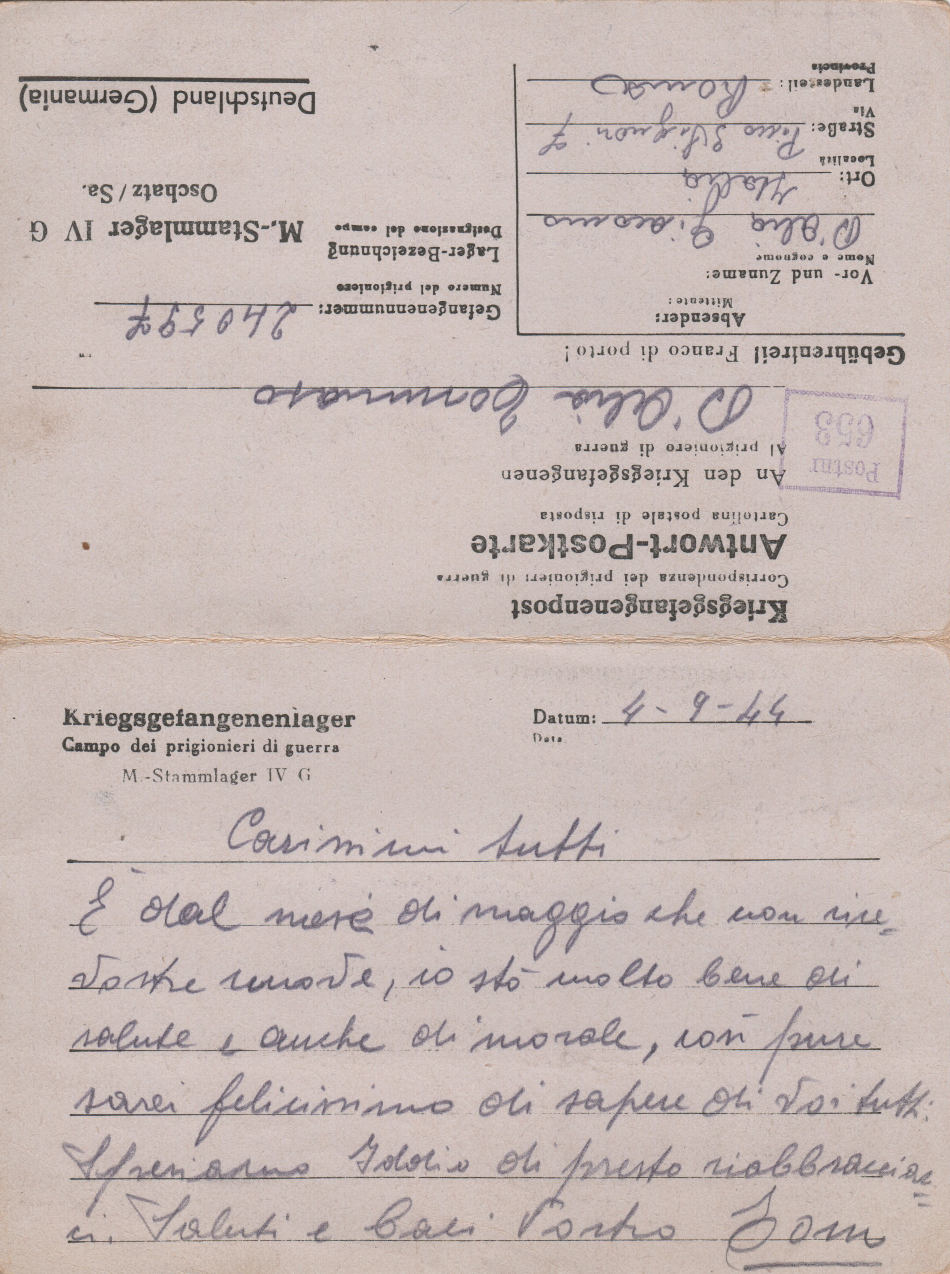 Kriegsgefangenenpost
Corrispondenza dei prigionieri di guerra
Antwort-Postkarte
Cartolina postale di risposta
An den Kriegsgefangenen
Al prigioniero di guerra
Postnr
653
D'Alia Tommaso
Gebührenfrei! Franco di porto!
Absender:
Mittente:
Vor- und Zuname:
Nome e cognome
D'Alia Giacomo
Ort: Italia
Località
Straße: 7
Via
Landesteil: Roma
Provincia
Gefangenennummer: 240597
Numero del prigioniero
Lager-Bezeichnung M.-Stammlager IV G
Designazione del campo
Oschatz / Sa.
Deutschland (Germania)
Kriegsgefangenenlager
Campo dei prigionieri di guerra
M.-Stammlager IV G
Datum: 4-9-44
Data
Carissimi tutti
È dal mese di maggio che non rice-
vostre nuove, io stò molto bene di
salute e anche di morale, così pure
sarei felicissimo di sapere di voi tutti.
Speriamo Iddio di presto riabbracciar-
ci. Saluti e baci Vostro Tom